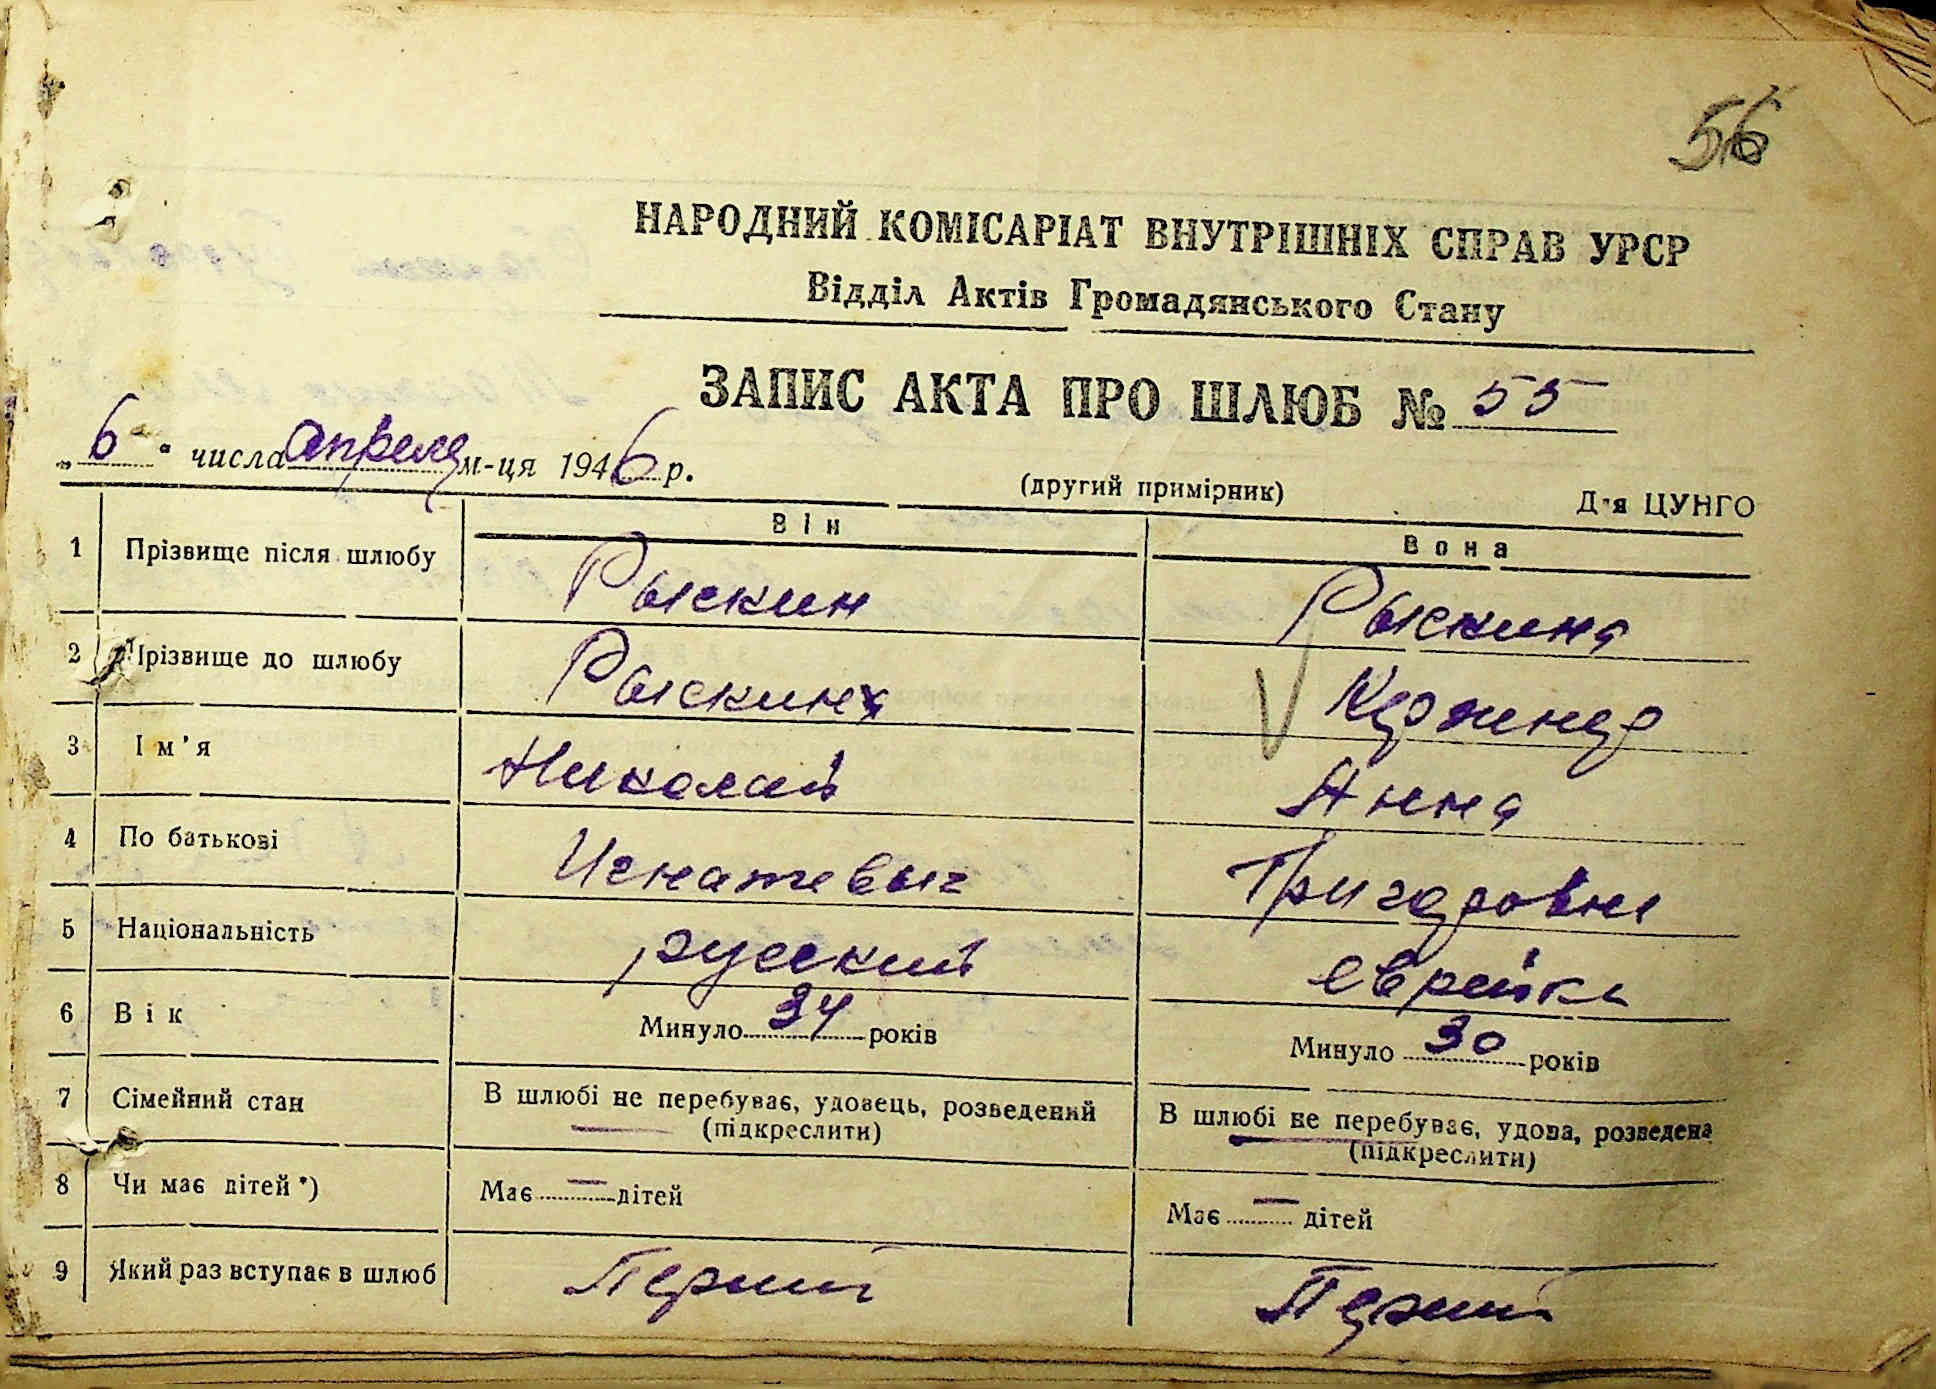 56
НАРОДНИЙ КОМІСАРІАТ ВНУТРІШНІХ СПРАВ УРСР
Відділ Актів Громадянського Стану
ЗАПИС АКТА ПРО ШЛЮБ № 55
„6“ числа апреля м-ця 1946 р.
(другий примірник) Для ЦУНГО
Він Вона
1 Прізвище після шлюбу Рыскин Рыскина
2 Прізвище до шлюбу Рыскин
3 Ім'я Николай Анна
4 По батькові Игнатевич Григоровна
5 Національність русский еврейка
6 Вік Минуло 34 років Минуло 30 років
7 Сімейний стан В шлюбі не перебуває, удовець, розведений В шлюбі не перебуває, удова, розведена
(підкреслити) (підкреслити)
8 Чи має дітей*) Має — дітей Має — дітей
9 Який раз вступає в шлюб Перший Перший